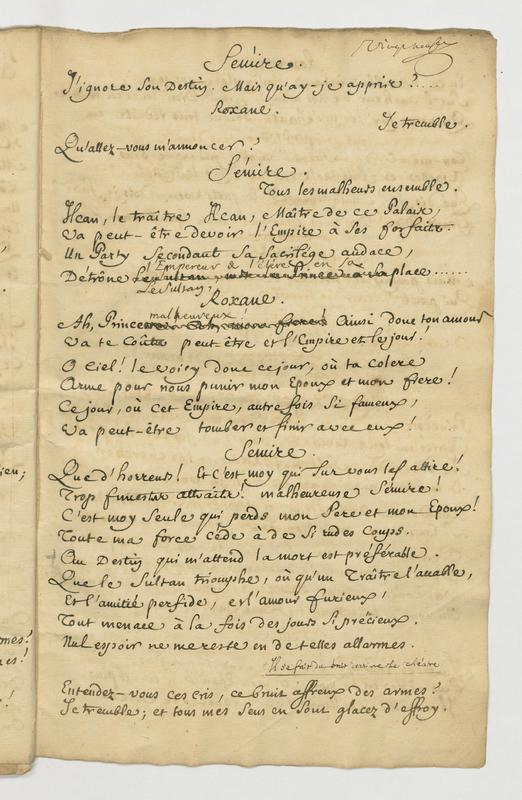 Sémire.
J'ignore son Destin. Mais qu'ay-je appris?.....
Roxane.
Je tremble.
Qu'allez-vous m'annoncer?
Sémire.
Tous les malheurs ensemble.
Hean, le traître Hean, Maître de ce Palais,
Va peut-être devoir l'Empire à Ses forfaits.
Un Party Secondant Sa Sacrilége audace,
l'Empereur & l'élève en Sa
Détrône place......
Le Sultan;
Roxane.
malheureux!
Ah, Prince Ainsi donc ton amour
Va te Coûter peut être et l'Empire et le jour!
O Ciel! le voicy donc ce jour, où ta colere
Arme pour nous punir mon Epoux et mon frere!
Ce jour, où cet Empire, autre fois Si fameux,
Va peut-être tomber et finir avec eux!
Sémire.
Que d'horreurs! Et C'est moy qui Sur vous les attire!
Trop funestes attraits! malheureuse Sémire!
C'est moy Seule qui perds mon Pere et mon Epoux!
Toute ma force cède à de Si rudes Coups.
Au Destin qui m'attend la mort est préférable.
Que le Sultan triomphe, où qu'un Traître l'accable,
Et l'amitié perfide, et l'amour furieux!
Tout menace à la fois des jours Si précieux.
Nul espoir ne me reste en de telles allarmes.
Il se fait du bruit derriere le théatre
Entendez-vous ces cris, ce bruit affreux des armes?
Je tremble; et tous mes Sens en Sont glacez d'effroy.
ien;
mes!
es!
!